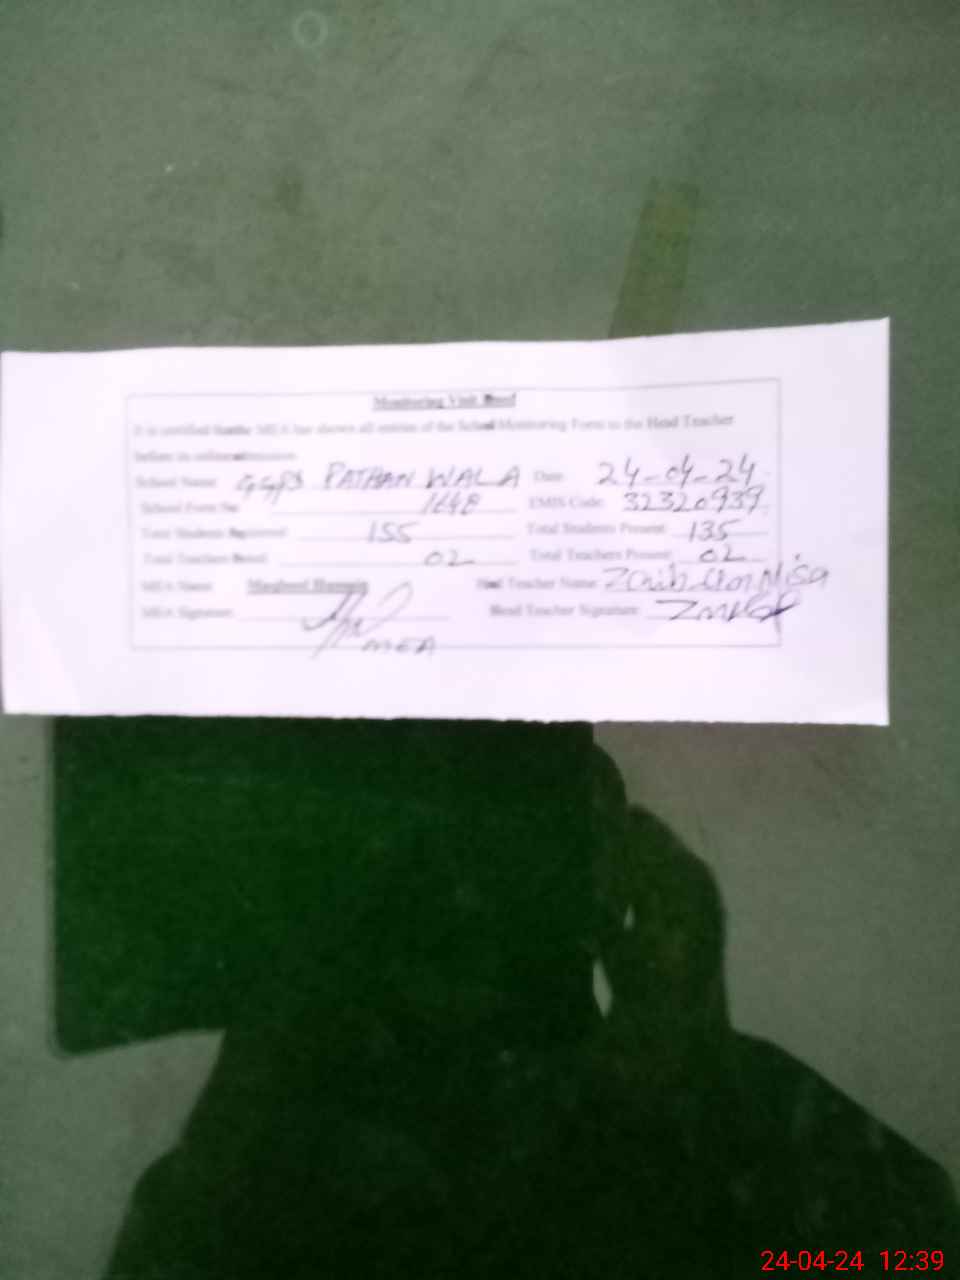 Monitoring Visit Proof
It is certified that the MEA has shown all entries of the School Monitoring Form to the Head Teacher
before its online
School Name GGPS PATHAN WALA Date: 24-04-24
School Form No 1648 EMIS Code: 32320939
Total Students Registered 155 Total Students Present: 135
Total Teachers Posted: 02 Total Teachers Present: 02
MEA Name Maqbool Hussain Head Teacher Name: Zaib un Nisa
MEA Signature Head Teacher Signature:
MEA
24-04-24 12:39